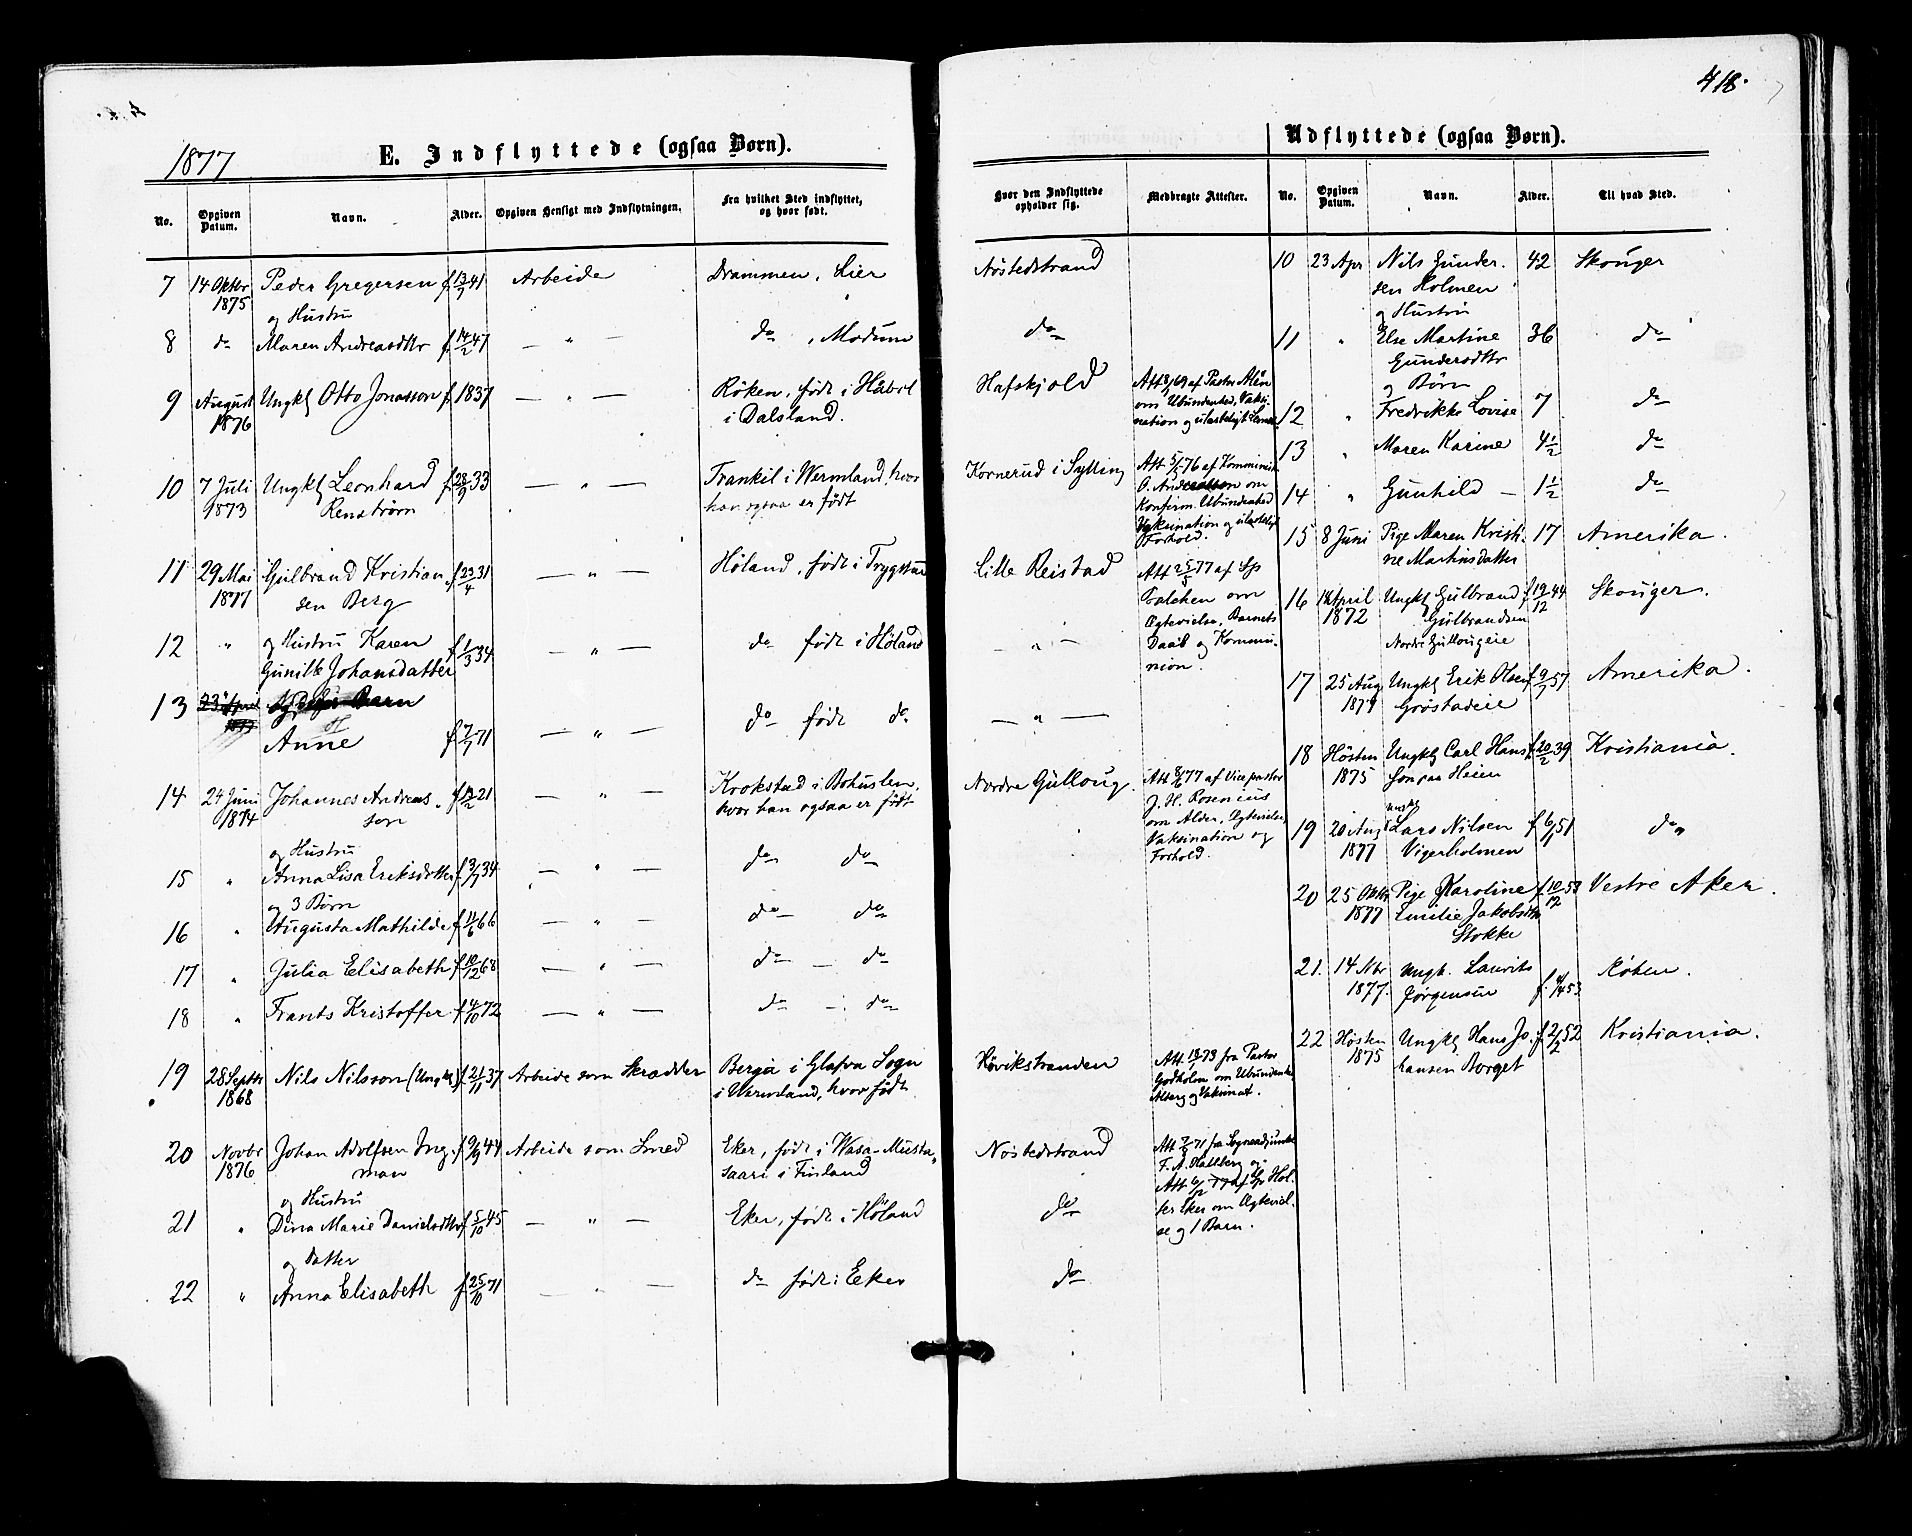 418.
1877
E. Indflyttede (ogsaa Børn).
No.
Opgiven Datum.
Navn.
Alder.
Opgiven Hensigt med Indflytningen.
Fra hvilket Sted indflyttet, og hvor født.
Hvor den Indflyttede opholder sig.
Medbragte Attester.
7 14 Oktbr Peder Gregersen f. 13/7 41 Arbeide Drammen, Lier Nøstedstrand
1875 og Hustru
8 do Maren Andreasdttr f. 14/2 47 — " — do , Modum do
9 August Ungkl Otto Jonasson f. 1837 — " — Røken, født i Håbol Hafskjold Att 8/ 69 af Pastor Alén
1876 i Dalsland. om Ubundenhed, Vaksi-
nation og ulasteligt
10 7 Juli Ungkl Leonhard f. 28/9 33 — " — Frankil i Wermland, hvor Kornerud i Sylling Att 5/5 76 af Komminist.
1873 Renstrøm han ogsaa er født O. om
Konfirm. Ubundenhed
Vaksination og ulasteligt
Forhold.
11 29 Mai Gulbrand Kristian- f. 23/4 31 — " — Høland, født i Trygstad Lille Reistad Att 25/5 77 af Sp
1877 sen Berg Calchen om
Ægtevielse, Barnets
12 " og Hustru Karen f. 1/3 34 — " — do født i Høland — " — Daab og Kommu-
Gunille Johansdatter nion.
13 23 April Barn
1877
Anne f. 7/7 71 — " — do født do — " —
14 24 Juni Johannes Andreas- f. 19/2 21 — " — Krokstad i Bohuslen, Nordre Gulloug. Att 8/6 77 af Vicepastor
1874 son hvor han ogsaa er født J. H. Rosenius
og Hustru om Alder, Ægtevielse
15 " Anna Lisa Eriksdotter f. 3/7 34 — " — do do Vaksination og
og 3 Børn Forhold.
16 " Augusta Mathilde f. 11/6 66 — " — do do
17 " Julia Elisabeth f. 10/12 68 — " — do — do
18 " Frants Kristoffer f. 4/10 72 — " — do — do
19 28 Septbr Nils Nilsson (Ungkl) f. 21/11 37 Arbeide som Skrædder Berga i Glafva Sogn Høvikstranden Att. 19/ 73 fra Pastor
1868 i Wermland, hvor født. Godholm om Ubundenh.
og Vaksinat.
20 Novbr Johan Adolfsen Ing- f. 9/9 44 Arbeide som Smed Eker, født i Wasa-Musta- Nøstedstrand Att 7/6 71 fra Sogneadjunkt
1876 man saari i Finland F. A. Hallberg og
og Hustru Att 6/2 77 af Sp Hol-
21 " Dina Marie Danielsdttr f. 5/10 45 — " — Eker, født i Høland do Eker om Ægteviel-
og Datter se og 1 Barn.
22 " Anna Elisabeth f. 25/10 71 — " — do født i Eker do
Udflyttede (ogsaa Børn).
No.
Opgiven Datum.
Navn.
Alder.
Til hvad Sted.
10 23 Apr Nils Gunder- 42 Skouger
sen Holmen
og Hustru
11 " Else Martine 36 do
Gundersdttr
og Børn
12 " Fredrikke Lovise 7 do
13 " Maren Karine 4 1/2 do
14 " Gunhild — 1 1/2 do
15 8 Juni Pige Maren Kristi- 17 Amerika.
ne Martinsdatter
16 1 April Ungkl Gulbrand f. 19/12 44 Skouger.
1872 Gulbrandsen
Nordre Gullougeie
17 25 Aug Ungkl Erik Olsen f. 9/7 57 Amerika.
1877 Grøstadeie
18 Høsten Ungkl Carl Hans- f. 20/2 39 Kristiania.
1875 son paa Heien
Ungkl
19 20 Aug Lars Nilsen f. 6/1 51 do
1877 Vigerholmen
20 25 Oktbr Pige Karoline f. 10/12 58 Vestre Aker.
1877 Emilie Jakobsdttr
Stokke
21. 14 Nbr Ungk. Laurits Røken.
1877. Jørgensen f. 53
22 Høsten Ungkl Hans Jo- f. 2/2 52 Kristiania.
1875 hansen Borget